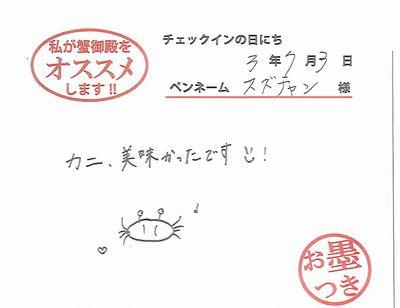 私が蟹御殿を
オススメ
します!!
チェックインの日にち
3年7月3日
ペンネーム スズチャン 様
カニ、美味かったです!
お墨
つき